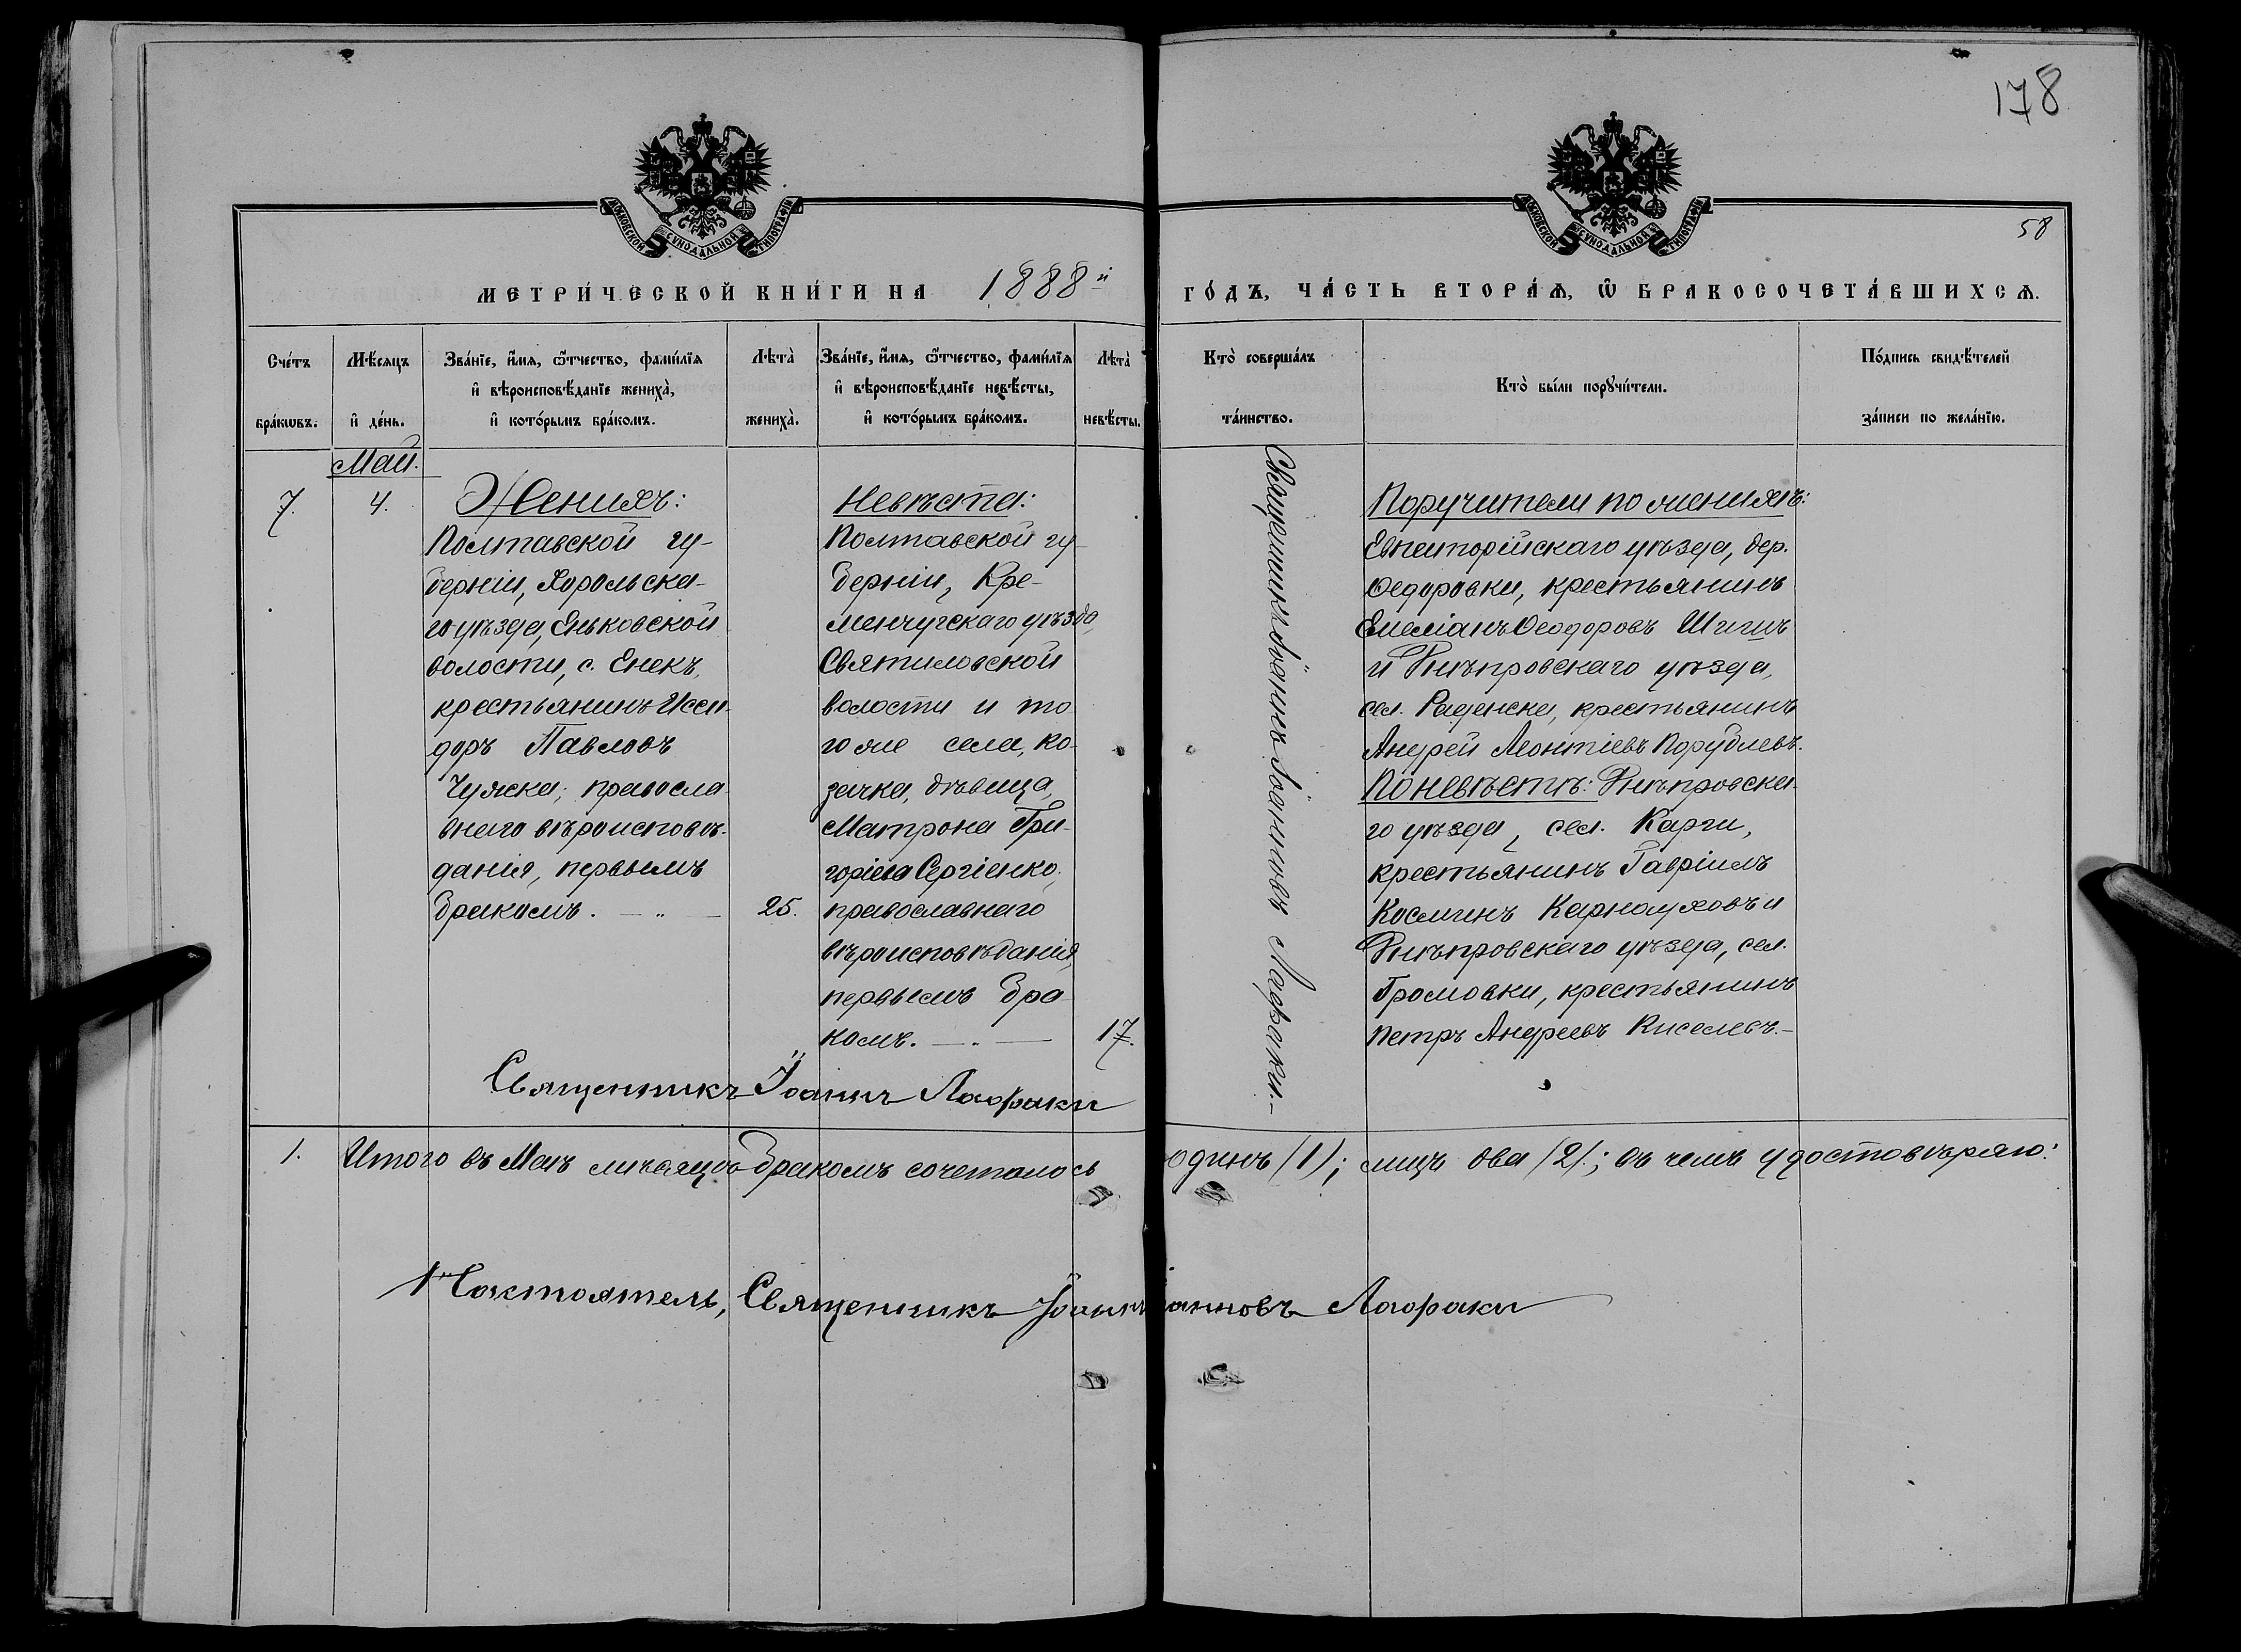 178
МОСКОВСКОЙ СѴНОДАЛЬНОЙ ТИПОГРАФІИ
МОСКОВСКОЙ СѴНОДАЛЬНОЙ ТИПОГРАФІИ
58
МЕТРИ́ЧЕСКОЙ КНИ́ГИ НА 1888й ГО́ДЪ, ЧА́СТЬ ВТОРА́Ѧ, Ѽ БРАКОСОЧЕТА́ВШИХСѦ.
Сче́тъ бра́кѡвъ.
Мѣ́сяцъ и҆ де́нь.
Зва́нїе, и҆́мя, ѻ҆́тчество, фами́лїя
и҆ вѣроисповѣ́данїе жениха̀,
и҆ кото́рымъ бра́комъ.
Лѣта̀ жениха̀.
Зва́нїе, и҆́мя, ѻ҆́тчество, фами́лїя
и҆ вѣроисповѣ́данїе невѣ́сты,
и҆ кото́рымъ бра́комъ.
Лѣта̀ невѣ́сты.
Кто̀ соверша́лъ
та́инство.
Кто̀ бы́ли порꙋчи́тели.
По́дпись свидѣ́телей
за́писи по жела́нїю.
Май.
7. 4.
Женихъ:
Полтавской гу-
берніи, Хорольска-
го уѣзда, Еньковской
волости, с. Енекъ,
крестьянинъ Иси-
доръ Павловъ
Чужска; правосла
внаго вѣроисповѣ-
данія, первымъ
бракомъ. — „ — 25.
Невѣста:
Полтавской гу-
берніи, Кре-
менчугскаго уѣзда,
Святиловской
волости и то
го же села, ко-
зачка, дѣвица,
Матрона Гри-
горіева Сергіенко,
православнаго
вѣроисповѣданія,
первымъ бра-
комъ. — „ — 17.
Священникъ Іоаннъ Іоанновъ Лафаки.—
Поручители по женихѣ:
Евпаторійскаго уѣзда, дер.
Ѳедоровки, крестьянинъ
Емеліанъ Ѳеодоровъ
и Днѣпровскаго уѣзда,
сел. Раденска, крестьянинъ
Андрей Леонтіевъ Порублевъ.
По невѣстѣ: Днѣпровска-
го уѣзда, сел. Карги,
крестьянинъ Гавріилъ
Косминъ Карнауховъ и
Днѣпровскаго уѣзда, сел.
Громовки, крестьянинъ
Петръ Андреевъ Киселевъ.—
Священникъ Іоаннъ Лафаки
1. Итого въ Маѣ мѣсяцѣ бракомъ сочеталось одинъ (1); лицъ два (2); въ чемъ удостовѣряю:
Настоятель, Священникъ Іоаннъ Іоанновъ Лафаки